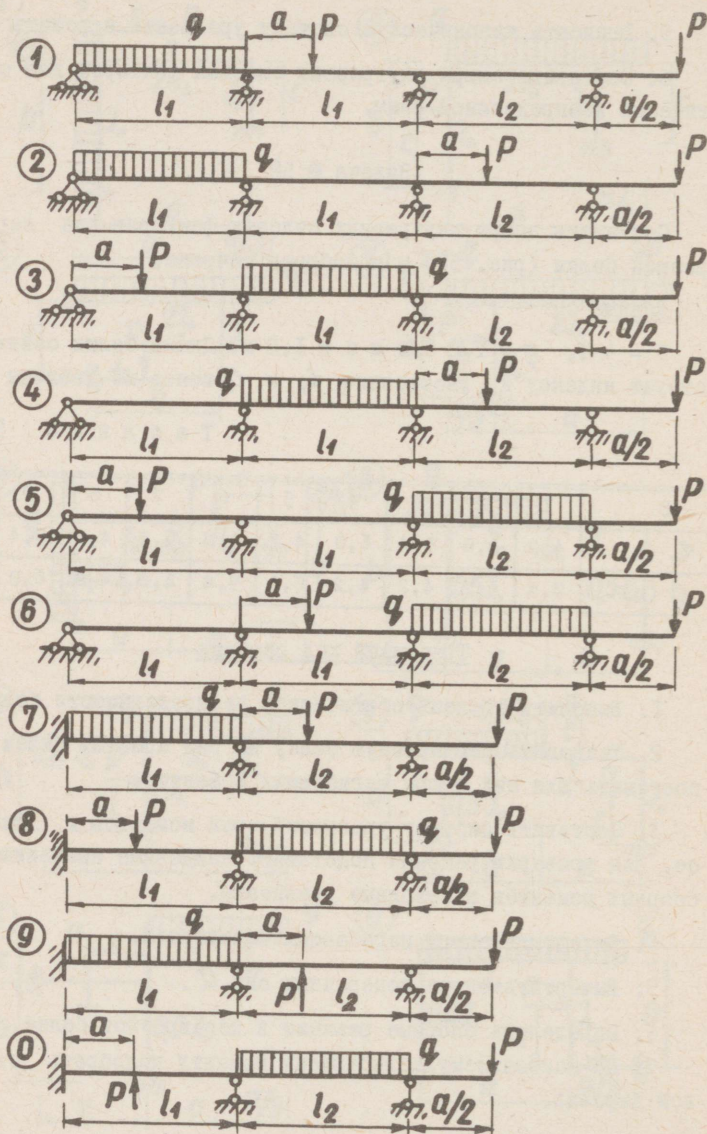 q a P P
1
l₁ l₁ l₂ a/2
q a P P
2
l₁ l₁ l₂ a/2
a P q P
3
l₁ l₁ l₂ a/2
q a P P
4
l₁ l₁ l₂ a/2
a P q P
5
l₁ l₁ l₂ a/2
a P q P
6
l₁ l₁ l₂ a/2
q a P P
7
l₁ l₂ a/2
a P q P
8
l₁ l₂ a/2
q a P
9
l₁ P l₂ a/2
a q P
0
P l₁ l₂ a/2